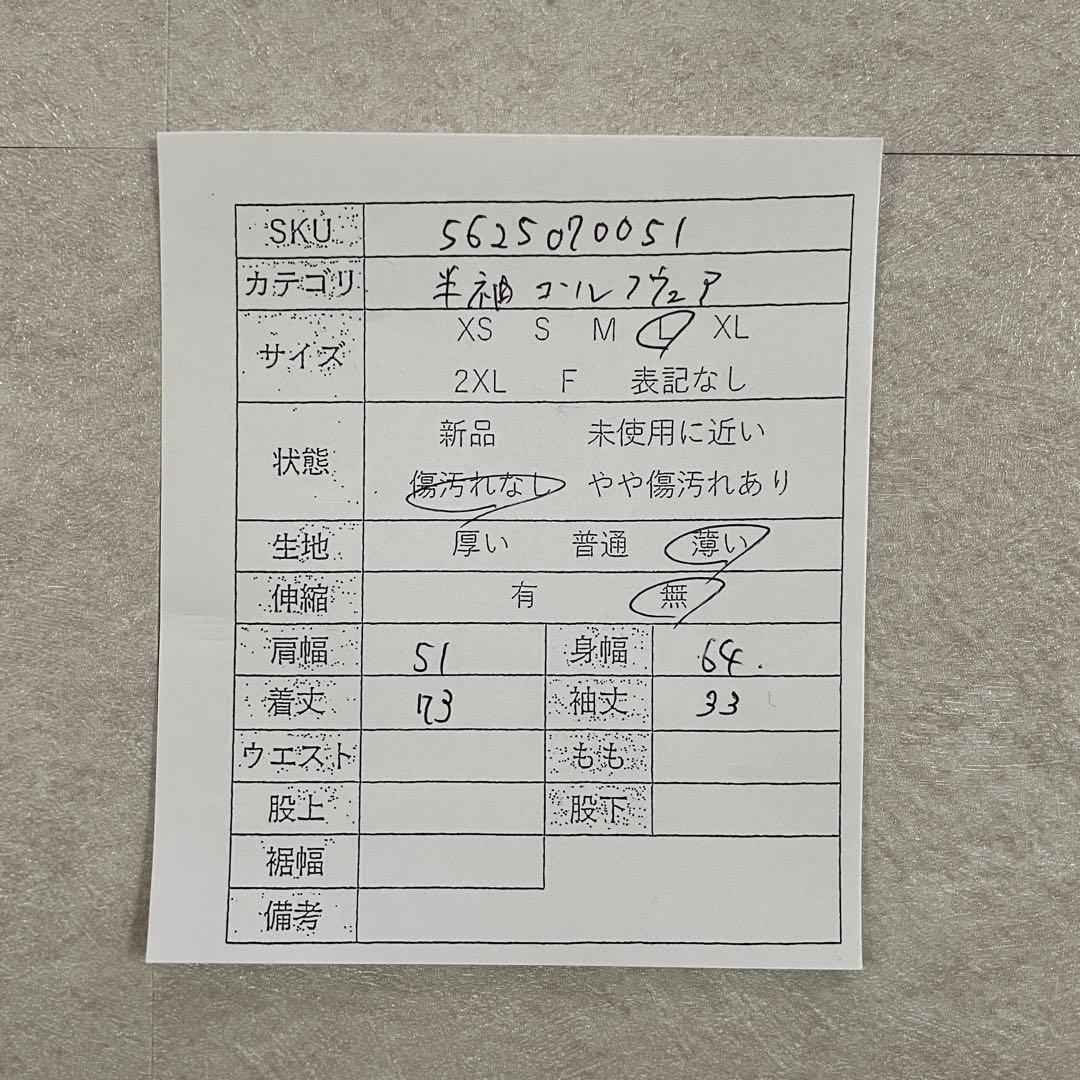 SKU 5625070051
カテゴリ 半袖 コールフウェア
サイズ XS S M L XL
2XL F 表記なし
状態 新品 未使用に近い
傷汚れなし やや傷汚れあり
生地 厚い 普通 薄い
伸縮 有 無
肩幅 51 身幅 64.
着丈 73 袖丈 33
ウエスト もも
股上 股下
裾幅
備考